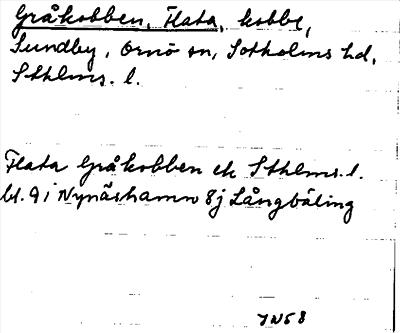 Gråkobben, Flata, kobbe,
Sundby, Ornö sn, Sotholms hd,
Sthlms. l.
Flata Gråkobben ek Sthlms. l.
bl. 9 i Nynäshamn 8j Långbäling
JN58